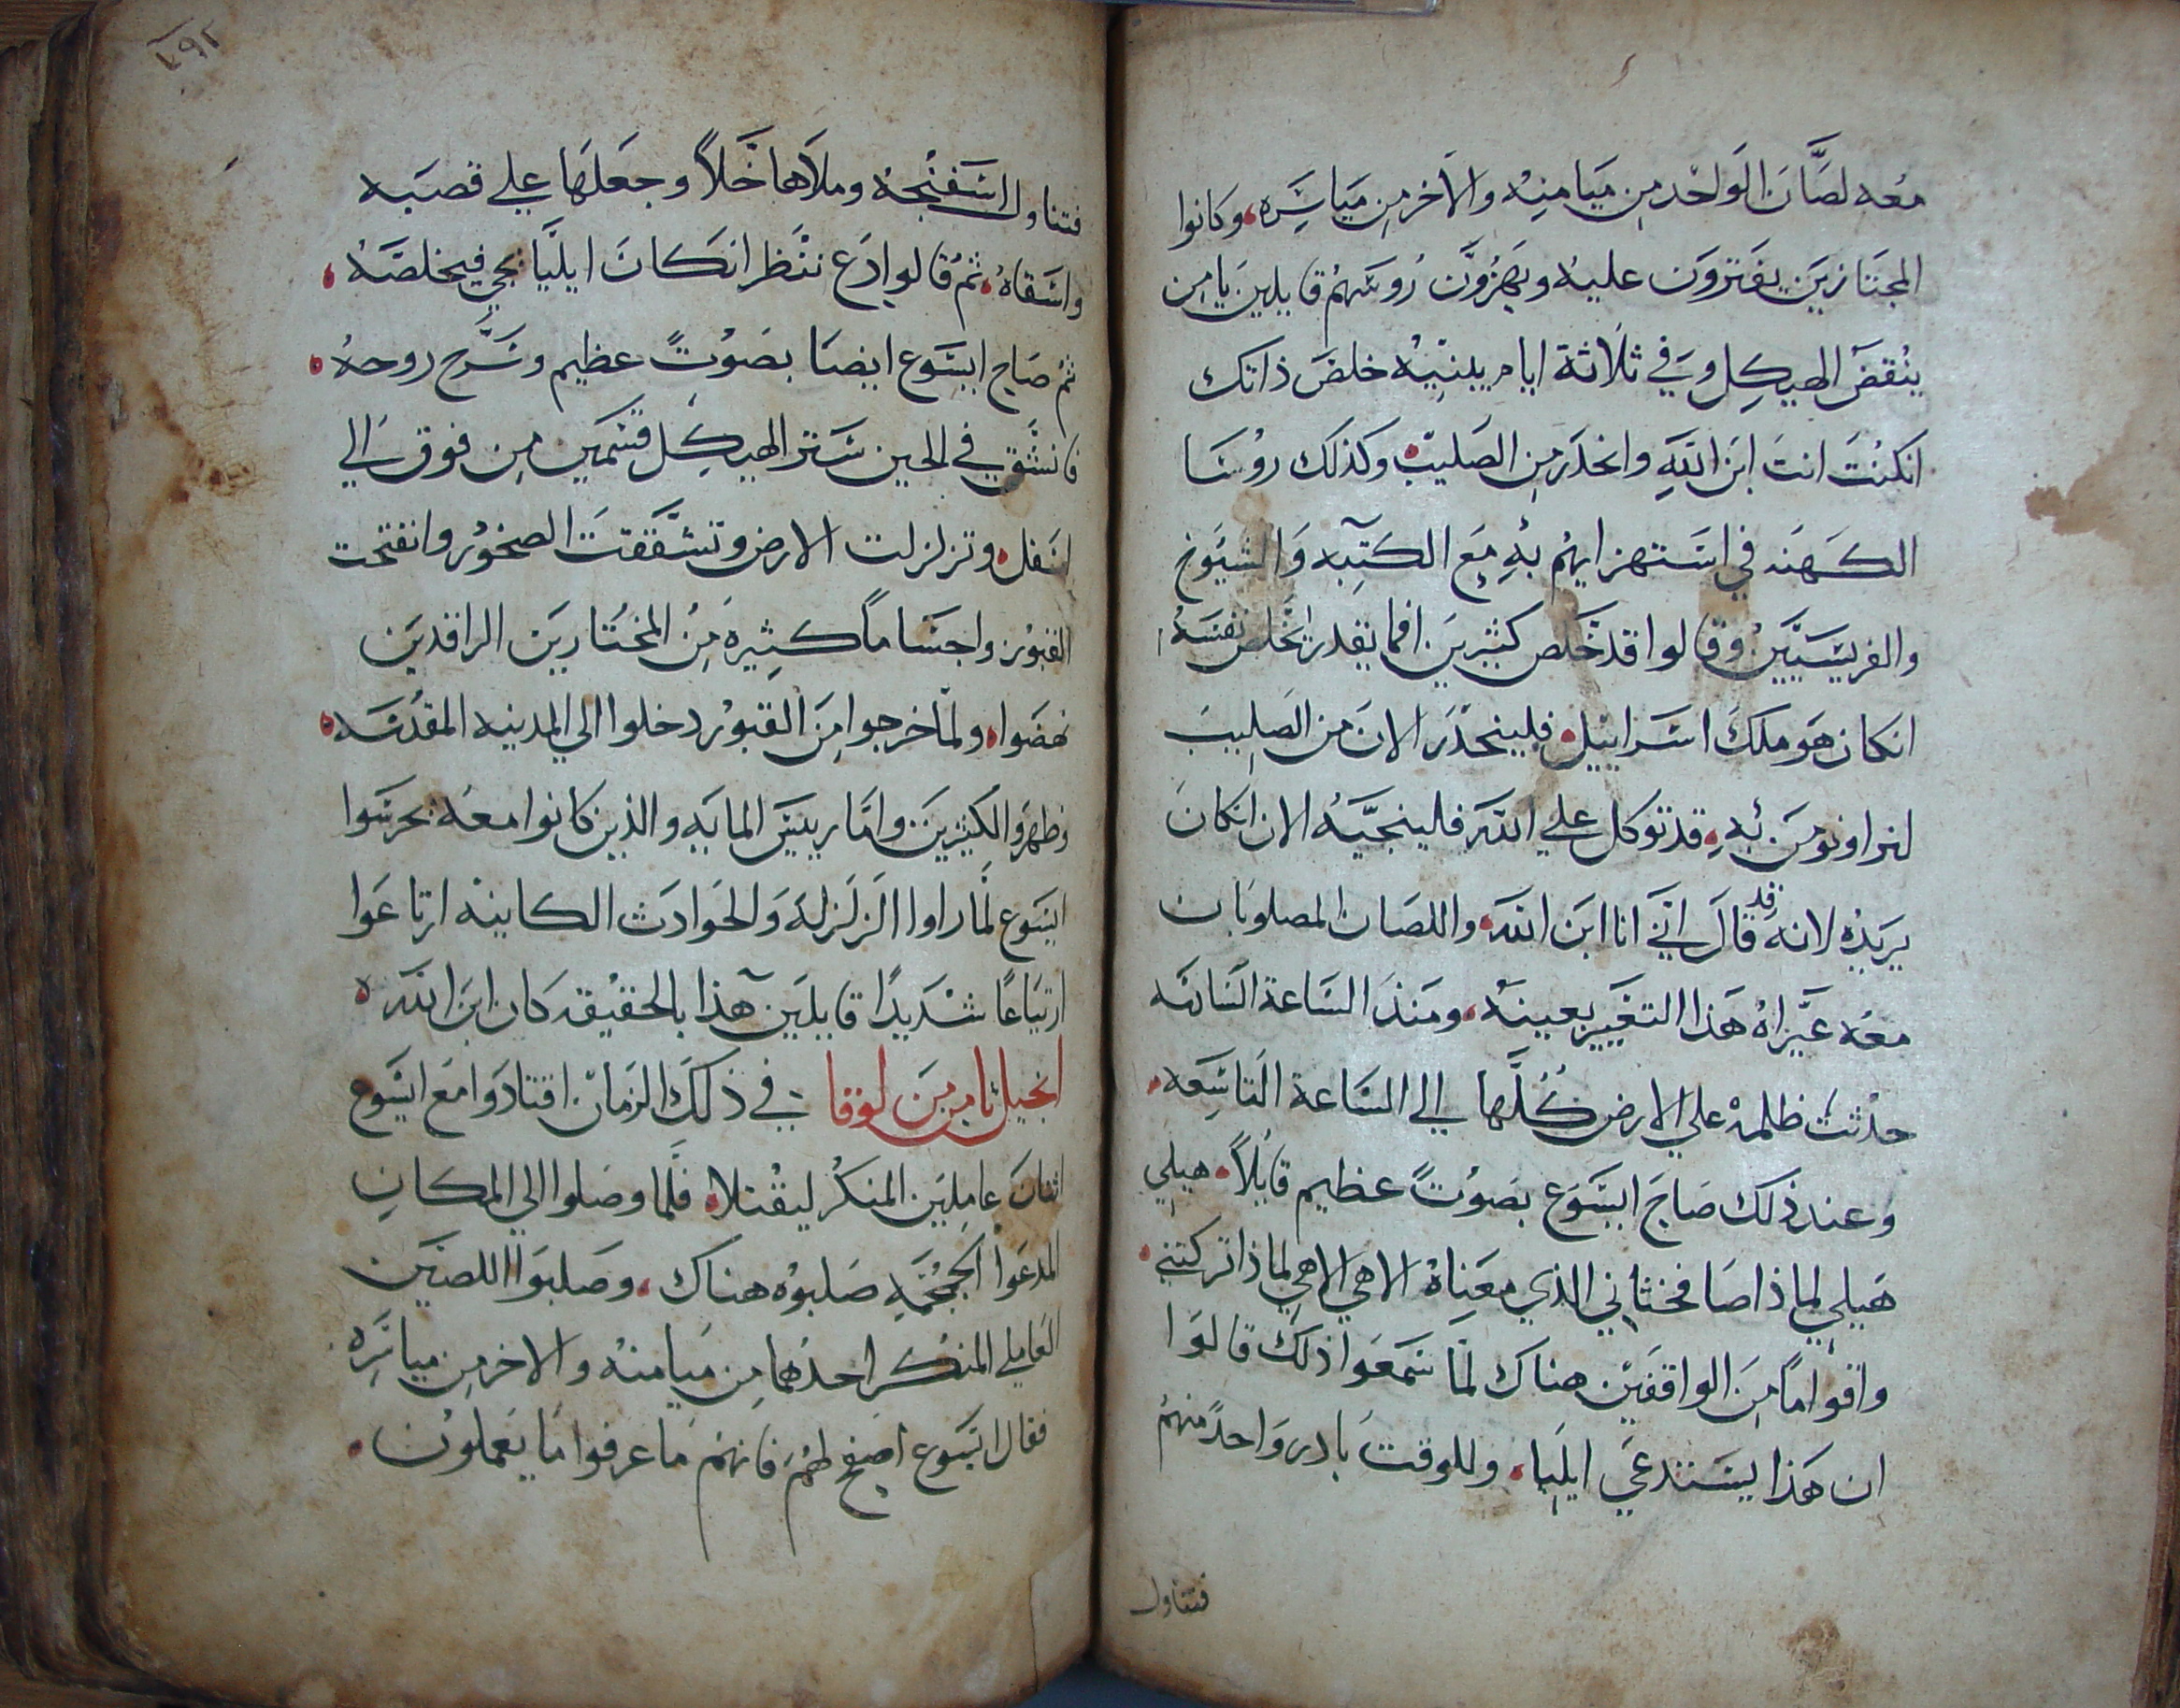 معه لصَّان الواحد من ميامنه والاخر من مياسره وكانوا
المجتازين يفترون عليه ويهزون روسهم قايلين يا من
ينقض الهيكل وفي ثلاثة ايام يبنيه خلص ذاتك
انكنت انت ابن الله وانحدر من الصليب وكذلك روسا
الكهنه في استهزايهم به مع الكتبه والشيوخ
والفريسيين وقالوا قد خلص كثيرين افما يقدر يخلص نفسه
انكان هو ملك اسراييل فلينحدر الان من الصليب
لنرا ونومن به قد توكل علي الله فلينجيه الان انكان
يريده لانه قد قال اني انا ابن الله واللصان المصلوبان
معه عيراه هذا التغيير بعينه ومنذ الساعة السادسه
حدثت ظلمة علي الارض كلها الي الساعة التاسعه
وعند ذلك صاح ايسوع بصوتً عظيم قايلاً هيلي
هيلي لماذا صافختاني الذي معناه الاهي الاهي لماذا تركتني
واقواماً من الواقفين هناك لما سمعوا ذلك قالوا
ان هذا يستدعي ايليا وللوقت بادر واحدً منهم
فتناول
٤٩٢
فتناول اسفنجه وملاها خلاً وجعلها علي قصبه
واسقاه ثم قالوا دع ننظر انكان ايليا يجي فيخلصه
ثم صاح ايسوع ايضا بصوتً عظيم وسرح روحه
فانشق في الحين ستر الهيكل قسمين من فوق الي
اسفل وتزلزلت الارض وتشققت الصخور وانفتحت
القبور واجساماً كثيره من المختارين الراقدين
نهضوا ولما خرجوا من القبور دخلوا الي المدينه المقدسه
وظهروا لكثيرين واما رييس المايه والذين كانوا معه يحرسوا
ايسوع لما راوا الزلزله والحوادث الكاينه ارتاعوا
ارتياعًا شديدًا قايلين هذا بالحقيقه كان ابن الله
انجيل ثامن من لوقا في ذلك الزمان اقتادوا مع ايسوع
اثنان عاملين المنكر ليقتلا فلما وصلوا الي المكان
المدعوا الجمجمه صلبوه هناك وصلبوا اللصين
العاملي المنكر احدهما من ميامنه والاخر من مياسره
فقال ايسوع اصفح لهم فانهم ما عرفوا ما يعملون